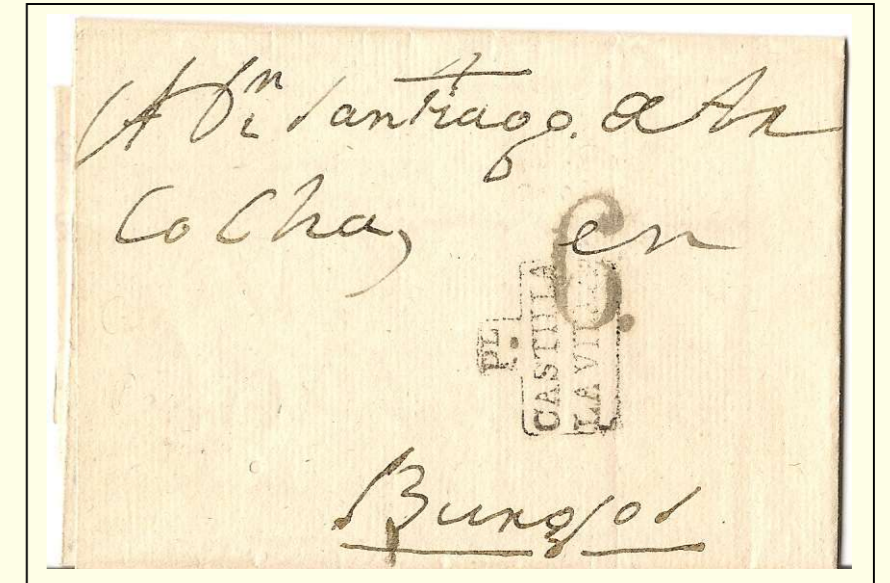 A Dn Santiago de An
Cocha, en
6.
PL.
CASTILLA
LA VIEJA
Burgos